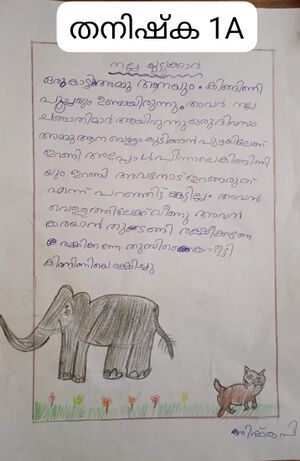 തനിഷ്ക 1A
നല്ല കൂട്ടുകാർ
ഒരു കാട്ടിൽ അമ്മു ആനയും കിങ്ങിണി
പൂച്ചയും ഉണ്ടായിരുന്നു. അവർ നല്ല
ചങ്ങാതിമാർ ആയിരുന്നു ഒരു ദിവസം
അമ്മു ആന വെള്ളം കുടിക്കാൻ പുഴയിലേക്ക്
ഇറങ്ങി അപ്പോൾ പിന്നാലെ കിങ്ങിണി
യും ഇറങ്ങി അവനോട് ഇറങ്ങരുത്
എന്ന് പറഞ്ഞിട്ട് കേട്ടില്ല. അവൻ
വെള്ളത്തിലേക്ക് വീണു അവൻ
കരയാൻ തുടങ്ങി രക്ഷിക്കണേ
രക്ഷിക്കണേ തുമ്പിക്കൈ നീട്ടി
കിങ്ങിണിയെ രക്ഷിച്ചു